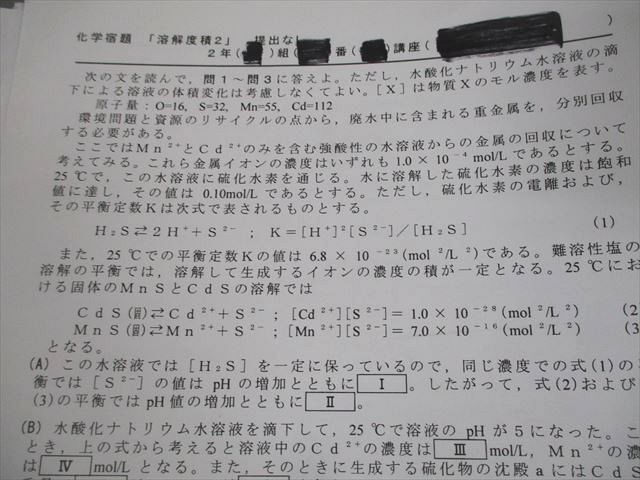 )
化学宿題 「溶解度積2」 提出な
2年( )組( 番( )講座(
次の文を読んで,問1〜問3に答えよ。ただし,水酸化ナトリウム水溶液の滴
下による溶液の体積変化は考慮しなくてよい。[X]は物質Xのモル濃度を表す。
原子量:O=16, S=32, Mn=55, Cd=112
環境問題と資源のリサイクルの点から,廃水中に含まれる重金属を,分別回収
する必要がある。
ここではMn²⁺とCd²⁺のみを含む強酸性の水溶液からの金属の回収について
考えてみる。これら金属イオンの濃度はいずれも 1.0 × 10⁻⁴ mol/L であるとする。
25 ℃で,この水溶液に硫化水素を通じる。水に溶解した硫化水素の濃度は飽和
値に達し,その値は 0.10mol/L であるとする。ただし,硫化水素の電離および,
その平衡定数Kは次式で表されるものとする。
H₂S⇄2H⁺+S²⁻ ; K=[H⁺]²[S²⁻]/[H₂S] (1)
また,25 ℃での平衡定数Kの値は 6.8 × 10⁻²³(mol²/L²)である。難溶性塩の
溶解の平衡では,溶解して生成するイオンの濃度の積が一定となる。25 ℃にお
ける固体のMnSとCdSの溶解では
CdS(固)⇄Cd²⁺+S²⁻ ; [Cd²⁺][S²⁻]= 1.0 × 10⁻²⁸(mol²/L²) (2
MnS(固)⇄Mn²⁺+S²⁻ ; [Mn²⁺][S²⁻]= 7.0 × 10⁻¹⁶(mol²/L²) (3
となる。
(A) この水溶液では[H₂S]を一定に保っているので,同じ濃度での式(1)の
衡では[S²⁻]の値は pH の増加とともに I 。したがって,式(2)および
(3)の平衡では pH 値の増加とともに II 。
(B) 水酸化ナトリウム水溶液を滴下して,25 ℃で溶液の pH が5になった。こ
とき,上の式から考えると溶液中のCd²⁺の濃度は III mol/L,Mn²⁺の濃
は IV mol/L となる。また,そのときに生成する硫化物の沈殿aにはCdS